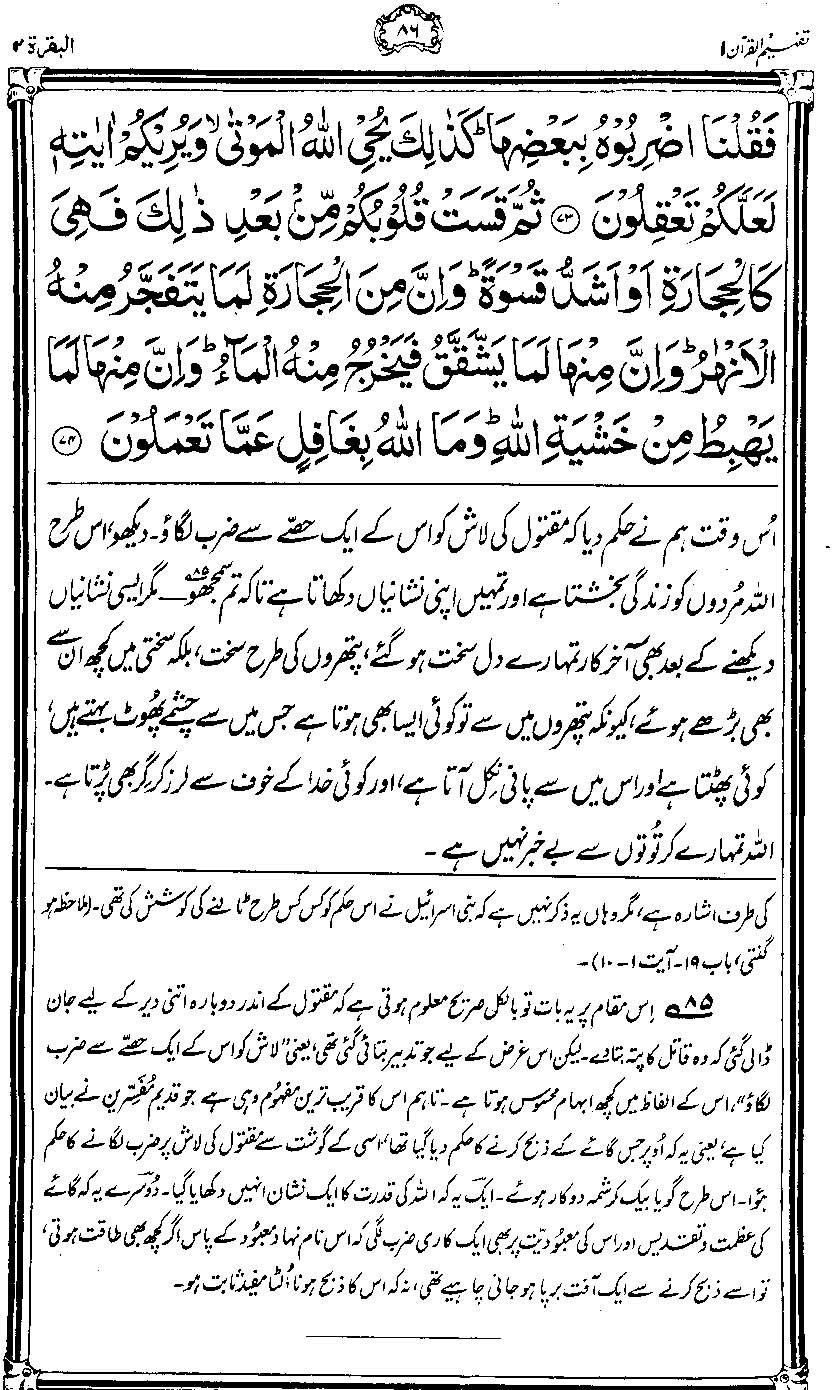 تفہیم القرآن ۱
۸۶
البقرۃ ۲
فَقُلْنَا اضْرِبُوْهُ بِبَعْضِهَا ؕ كَذٰلِكَ يُحْيِ اللّٰهُ الْمَوْتٰى ۙ وَيُرِيْكُمْ اٰيٰتِهٖ
لَعَلَّكُمْ تَعْقِلُوْنَ ﴿۷۳﴾ ثُمَّ قَسَتْ قُلُوْبُكُمْ مِّنْۢ بَعْدِ ذٰلِكَ فَهِىَ
كَالْحِجَارَةِ اَوْ اَشَدُّ قَسْوَةً ؕ وَاِنَّ مِنَ الْحِجَارَةِ لَمَا يَتَفَجَّرُ مِنْهُ
الْاَنْهٰرُ ؕ وَاِنَّ مِنْهَا لَمَا يَشَّقَّقُ فَيَخْرُجُ مِنْهُ الْمَآءُ ؕ وَاِنَّ مِنْهَا لَمَا
يَهْبِطُ مِنْ خَشْيَةِ اللّٰهِ ؕ وَمَا اللّٰهُ بِغَافِلٍ عَمَّا تَعْمَلُوْنَ ﴿۷۴﴾
اُس وقت ہم نے حکم دیا کہ مقتول کی لاش کو اس کے ایک حصّے سے ضرب لگاؤ۔ دیکھو، اس طرح
اللہ مُردوں کو زندگی بخشتا ہے اور تمہیں اپنی نشانیاں دکھاتا ہے تاکہ تم سمجھو۸۵ــــ مگر ایسی نشانیاں
دیکھنے کے بعد بھی آخر کار تمہارے دل سخت ہوگئے، پتھروں کی طرح سخت، بلکہ سختی میں کچھ ان سے
بھی بڑھے ہوئے، کیونکہ پتھروں میں سے تو کوئی ایسا بھی ہوتا ہے جس میں سے چشمے پھُوٹ بہتے ہیں،
کوئی پھٹتا ہے اور اس میں سے پانی نکل آتا ہے، اور کوئی خدا کے خوف سے لرز کر گر بھی پڑتا ہے۔
اللہ تمہارے کرتُوتوں سے بے خبر نہیں ہے ۔
کی طرف اشارہ ہے، مگر وہاں یہ ذکر نہیں ہے کہ بنی اسرائیل نے اس حکم کو کس کس طرح ٹالنے کی کوشش کی تھی۔ (ملاحظہ ہو
گنتی، باب ۱۹۔ آیت ۱ـ۱۰)۔
۸۵ اِس مقام پر یہ بات تو بالکل صریح معلوم ہوتی ہے کہ مقتول کے اندر دوبارہ اتنی دیر کے لیے جان
ڈالی گئی کہ وہ قاتل کا پتہ بتادے۔ لیکن اس غرض کے لیے جو تدبیر بتائی گئی تھی، یعنی ”لاش کو اس کے ایک حصّے سے ضرب
لگاؤ“، اس کے الفاظ میں کچھ ابہام محسوس ہوتا ہے۔ تاہم اس کا قریب ترین مفہوم وہی ہے جو قدیم مُفَسِّرین نے بیان
کیا ہے، یعنی یہ کہ اُوپر جس گائے کے ذبح کرنے کا حکم دیا گیا تھا، اسی کے گوشت سے مقتول کی لاش پر ضرب لگانے کا حکم
ہُوا۔ اس طرح گویا بیک کرشمہ دوکار ہوئے۔ ایک یہ کہ اللہ کی قدرت کا ایک نشان انہیں دکھایا گیا۔ دُوسرے یہ کہ گائے
کی عظمت و تقدیس اور اس کی معبودیّت پر بھی ایک کاری ضرب لگی کہ اس نام نہاد معبُود کے پاس اگر کچھ بھی طاقت ہوتی،
تو اسے ذبح کرنے سے ایک آفت برپا ہو جانی چاہیے تھی، نہ کہ اس کا ذبح ہونا اُلٹا مفید ثابت ہو۔